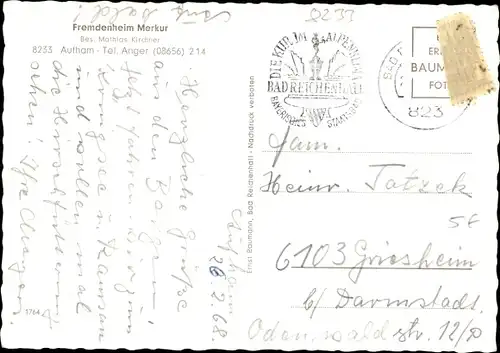 Auf bald!
8233
Fremdenheim Merkur
Bes. Mathias Kirchner
8233 Aufham - Tel. Anger (08656) 214
Aufham
26.2.68.
Herzliche Grüße
aus den Bergen.
Jetzt fahren wir zum
Königsee u. Ramsau
und wollen mal
die Hirschfütterung
sehen!
1764
Ernst Baumann, Bad Reichenhall - Nachdruck verboten
DIE KUR IM ALPENKLIMA
BAD REICHENHALL
BAYERISCHES STAATSBAD
BAD
823
ER
BAUM
FOT
Fam.
Heinr. Tatzek
6103 Griesheim
b/ Darmstadt.
Odenwaldstr. 12/D